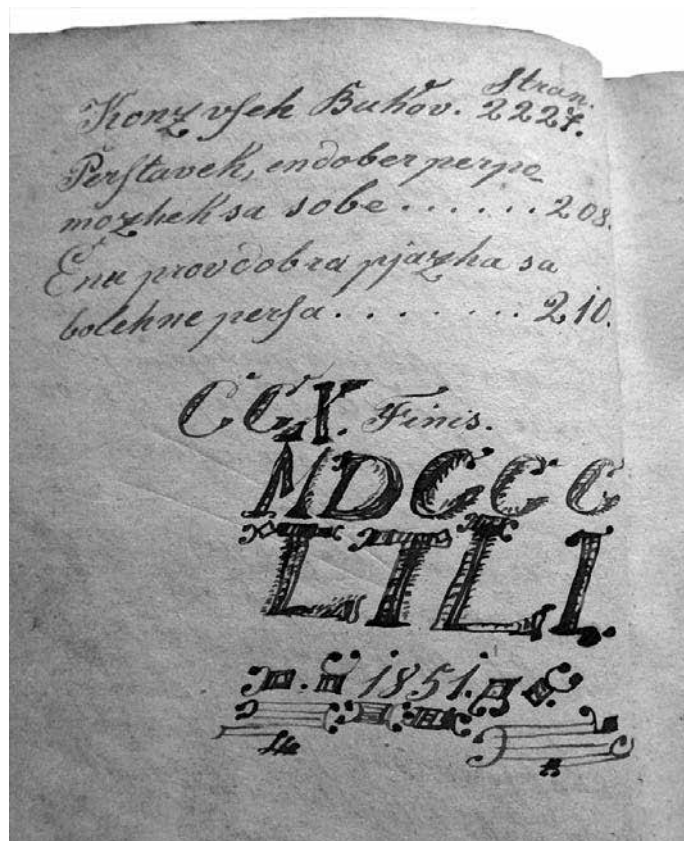 Stran.
Konz vſeh Bukov. 222 7.
Perſtavek, en dober perpo
mozhek sa sobe . . . . . . 208.
Ena prov dobra pjazha sa
bolehne perſa . . . . . . . . 210.
CGK. Finis.
MDCCC
LILI.
1851.